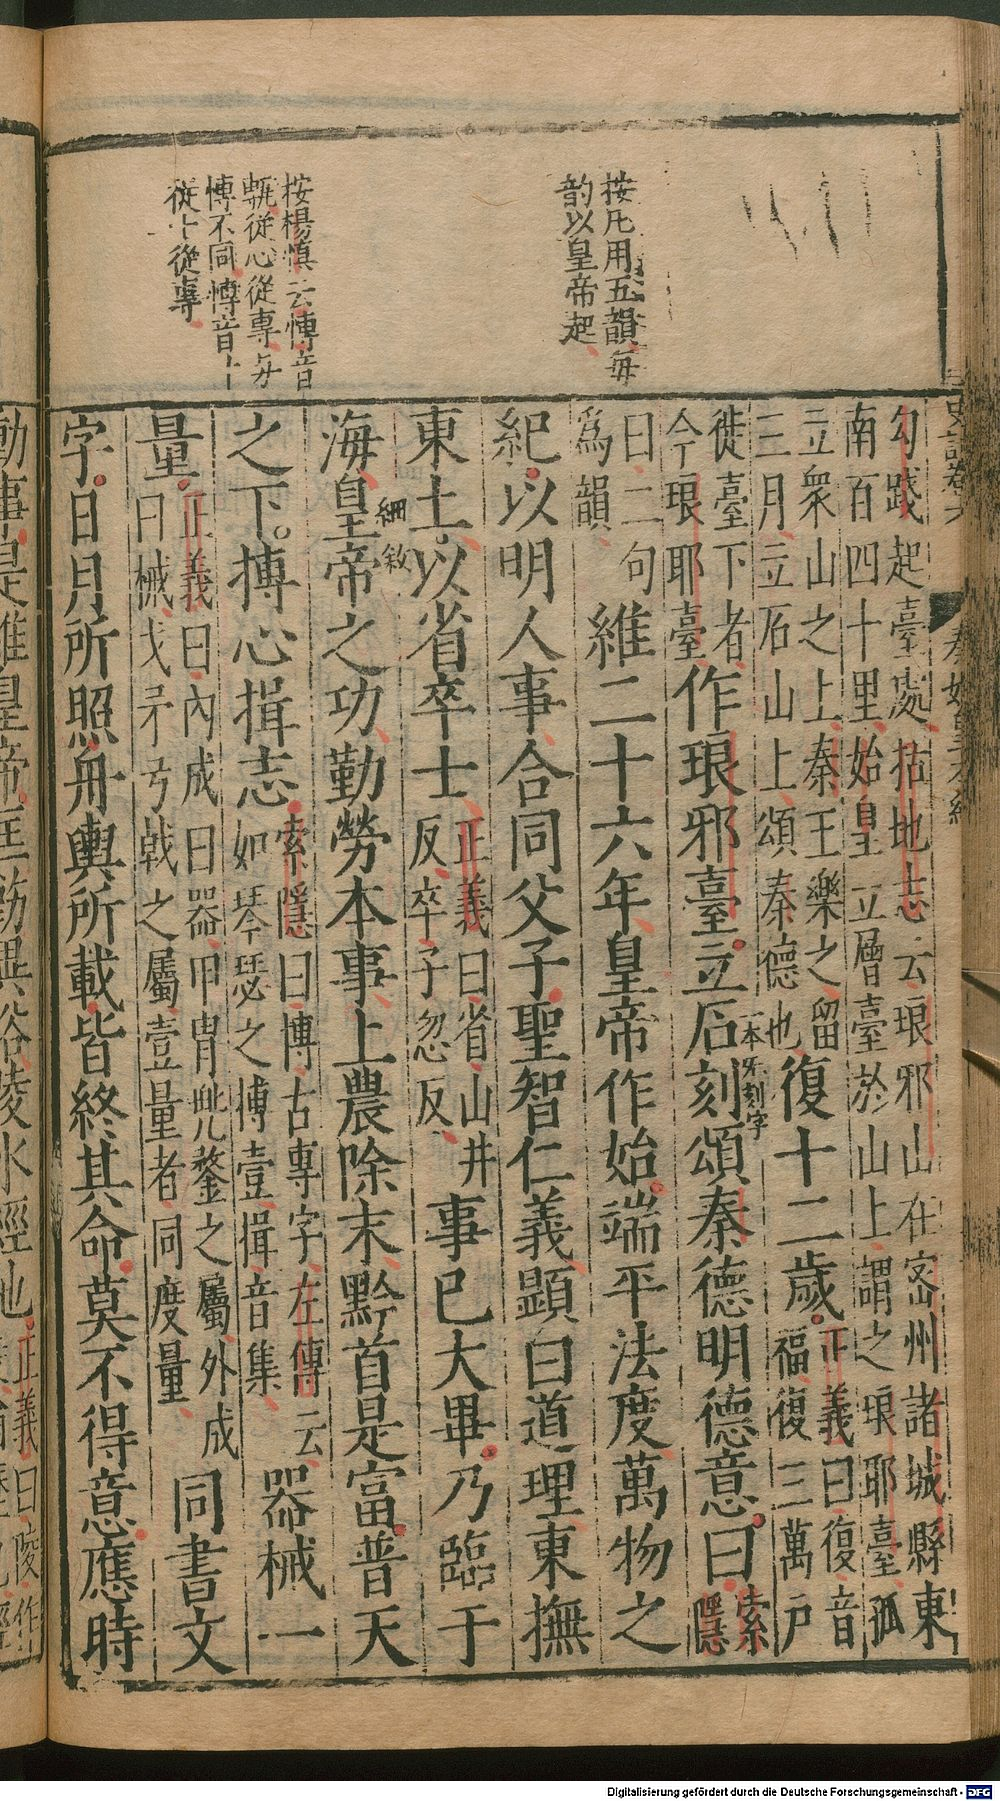 按凡用五韻每
韵以皇帝起
按楊慎云慱音
從心從專與
慱不同博音十
從十從尃
勾踐起臺處括地志云琅邪山在密州諸城縣東
南百四十里始皇立層臺於山上謂之琅耶臺孤
立衆山之上秦王樂之留
三月立石山上頌秦德也
復十二歲
正義曰復音
福復三萬戶
徙臺下者
今琅耶臺
作琅邪臺立石刻頌秦德明德意曰
一本無刻字
索
隱
曰二句
爲韻
維二十六年皇帝作始端平法度萬物之
紀以明人事合同父子聖智仁義顯白道理東撫
東土以省卒士
正義曰省山井
反卒子忽反
事已大畢乃臨于
海皇帝之功勤勞本事上農除末黔首是富普天
細敘
之下摶心揖志
索隱曰摶古專字左傳云
如琴瑟之摶壹揖音集
器械一
量
正義曰內成曰器甲冑兜鍪之屬外成
曰械戈矛弓戟之屬壹量者同度量
同書文
字日月所照舟輿所載皆終其命莫不得意應時
動事是維皇帝匡飭異俗陵水經地
正義曰陵作
Digitalisierung gefördert durch die Deutsche Forschungsgemeinschaft - DFG